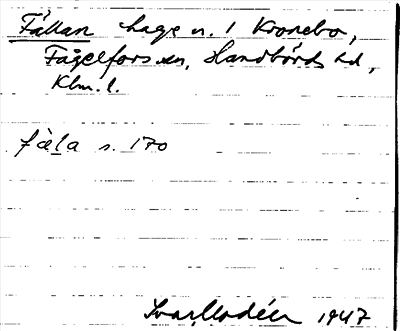 Fållan hage n. 1 Kronebo,
Fågelfors sn, Handbörds hd,
Klm. l.
fåla s. 170
Ivar Modéer 1947